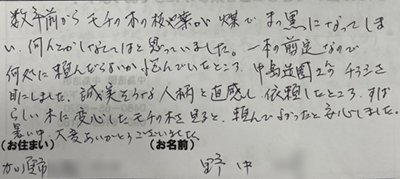 数年前からモチの木の枝や葉が煤でまっ黒になってしま
い、何んとかしなくてはと思っていました。一本の前足なので
何処に頼んだらいいか悩んでいたところ、中島造園さんのチラシを
目にしました。誠実そうな人柄と直感し、依頼したところ、すば
らしい木に変心したモチの木を見ると、頼んでよかったと安心しました。
暑い中、大変ありがとうございました。
(お住まい) (お名前)
加 野中